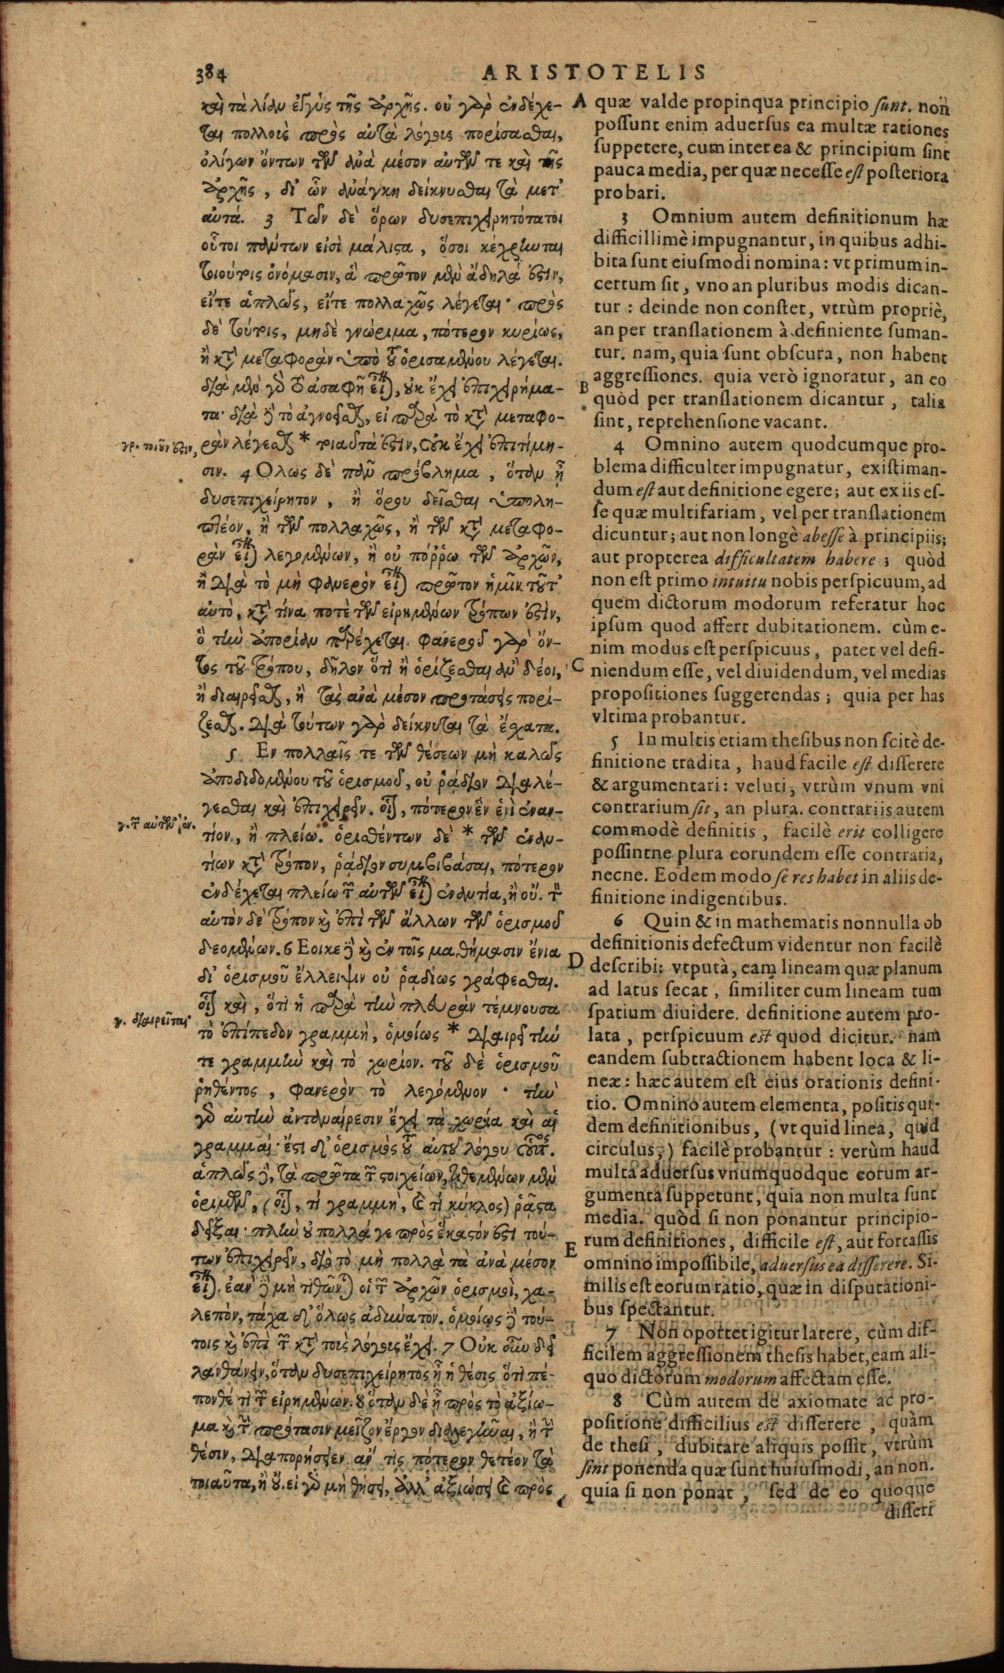 384
ARISTOTELIS
καὶ τὰ λίαν ἐγγὺς τῆς ἀρχῆς. οὐ γὰρ ἐνδέχε-
ται πολλοὺς πρὸς αὐτὰ λόγους πορίσασθαι,
ὀλίγων ὄντων τῶν ἀνὰ μέσον αὐτῶν τε καὶ τῆς
ἀρχῆς, δι' ὧν ἀνάγκη δείκνυσθαι τὰ μετ'
αὐτά. 3 Τῶν δὲ ὅρων δυσεπιχειρητότατοι
οὗτοι πάντων εἰσὶ μάλιστα, ὅσοι κέχρηνται
τοιούτοις ὀνόμασιν, ἃ πρῶτον μὲν ἄδηλά ἐστιν,
εἴτε ἁπλῶς, εἴτε πολλαχῶς λέγεται· πρὸς
δὲ τούτοις, μηδὲ γνώριμα, πότερον κυρίως,
ἢ κατὰ μεταφορὰν ὑπὸ τοῦ ὁρισαμένου λέγεται.
διὰ μὲν γὰρ τὸ ἀσαφῆ εἶναι, οὐκ ἔχει ἐπιχειρήμα-
τα· διὰ δὲ τὸ ἀγνοεῖσθαι, εἰ παρὰ τὸ κατὰ μεταφο-
γρ. τοιοῦτόν ἐστιν,
ρὰν λέγεσθαι * τοιαῦτά ἐστιν, οὐκ ἔχει ἐπιτίμη-
σιν. 4 Ολως δὲ πᾶν πρόβλημα, ὅταν ᾖ
δυσεπιχείρητον, ἢ ὅρου δεῖσθαι ὑπολη-
πτέον, ἢ τῶν πολλαχῶς, ἢ τῶν κατὰ μεταφο-
ρὰν εἶναι λεγομένων, ἢ οὐ πόῤῥω τῶν ἀρχῶν,
ἢ διὰ τὸ μὴ φανερὸν εἶναι πρῶτον ἡμῖν τοῦτ'
αὐτὸ, κατὰ τίνα ποτὲ τῶν εἰρημένων τρόπων ἐστὶν,
ὃ τὴν ἀπορίαν παρέχεται. φανεροῦ γὰρ ὄν-
τος τοῦ τρόπου, δῆλον ὅτι ἢ ὁρίζεσθαι ἂν δέοι,
ἢ διαιρεῖσθαι, ἢ τὰς ἀνὰ μέσον προτάσεις πορί-
ζεσθαι. διὰ τούτων γὰρ δείκνυται τὰ ἔσχατα.
5 Εν πολλαῖς τε τῶν θέσεων μὴ καλῶς
ἀποδιδομένου τοῦ ὁρισμοῦ, οὐ ῥᾴδιον διαλέ-
γεσθαι καὶ ἐπιχειρεῖν. οἷον, πότερον ἓν ἑνὶ ἐναν-
γ. τῷ αὐτῷ ἓν.
τίον, ἢ πλείω. ὁρισθέντων δὲ * τῶν ἐναν-
τίων κατὰ τρόπον, ῥᾴδιον συμβιβάσαι, πότερον
ἐνδέχεται πλείω τῷ αὐτῷ εἶναι ἐναντία, ἢ οὔ. τὸν
αὐτὸν δὲ τρόπον καὶ ἐπὶ τῶν ἄλλων τῶν ὁρισμοῦ
δεομένων. 6 Εοικε δὲ καὶ ἐν τοῖς μαθήμασιν ἔνια
δι' ὁρισμοῦ ἔλλειψιν οὐ ῥᾳδίως γράφεσθαι.
οἷον καὶ, ὅτι ἡ παρὰ τὴν πλευρὰν τέμνουσα
γ. διαιρεῖται
τὸ ἐπίπεδον γραμμὴ, ὁμοίως * διαιρεῖ τήν
τε γραμμὴν καὶ τὸ χωρίον. τοῦ δὲ ὁρισμοῦ
ῥηθέντος, φανερὸν τὸ λεγόμενον· τὴν
γὰρ αὐτὴν ἀνταναίρεσιν ἔχει τὰ χωρία καὶ αἱ
γραμμαί· ἔστι δ' ὁρισμὸς τοῦ αὐτοῦ λόγου οὗτος.
ἁπλῶς δὲ, τὰ πρῶτα τῶν στοιχείων, τιθεμένων μὲν
ὁρισμῶν, (οἷον, τί γραμμὴ, καὶ τί κύκλος) ῥᾷστα
δεῖξαι· πλὴν οὐ πολλά γε πρὸς ἕκαστόν ἐστι τού-
των ἐπιχειρεῖν, διὰ τὸ μὴ πολλὰ τὰ ἀνὰ μέσον
εἶναι. ἐὰν δὲ μὴ τιθῶνται οἱ τῶν ἀρχῶν ὁρισμοὶ, χα-
λεπὸν, τάχα δ' ὅλως ἀδύνατον. ὁμοίως δὲ τού-
τοις καὶ ἐπὶ τῶν κατὰ τοὺς λόγους ἔχει. 7 Οὐκ οὖν δεῖ
λανθάνειν, ὅταν δυσεπιχείρητος ᾖ ἡ θέσις ὅτι πέ-
πονθέ τι τῶν εἰρημένων. 8 ὅταν δὲ ᾖ πρὸς τὸ ἀξίω-
μα καὶ τὴν πρότασιν μεῖζον ἔργον διαλεγῆναι, ἢ τὴν
θέσιν, διαπορήσειεν ἄν τις πότερον θετέον τὰ
τοιαῦτα, ἢ οὔ. εἰ γὰρ μὴ θήσει, ἀλλ' ἀξιώσει καὶ πρὸς
A quæ valde propinqua principio sunt. non
possunt enim aduersus ea multæ rationes
suppetere, cum inter ea & principium sint
pauca media, per quæ necesse est posteriora
probari.
3 Omnium autem definitionum hæ
difficillimè impugnantur, in quibus adhi-
bita sunt eiusmodi nomina: vt primum in-
certum sit, vno an pluribus modis dican-
tur : deinde non constet, vtrùm propriè,
an per translationem à definiente suman-
tur. nam, quia sunt obscura, non habent
B aggressiones. quia verò ignoratur, an eo
quòd per translationem dicantur, talia
sint, reprehensione vacant.
4 Omnino autem quodcumque pro-
blema difficulter impugnatur, existiman-
dum est aut definitione egere; aut ex iis es-
se quæ multifariam, vel per translationem
dicuntur; aut non longè abesse à principiis;
aut propterea difficultatem habere ; quòd
non est primo intuitu nobis perspicuum, ad
quem dictorum modorum referatur hoc
ipsum quod affert dubitationem. cùm e-
nim modus est perspicuus, patet vel defi-
C niendum esse, vel diuidendum, vel medias
propositiones suggerendas ; quia per has
vltima probantur.
5 In multis etiam thesibus non scitè de-
finitione tradita, haud facile est disserere
& argumentari: veluti, vtrùm vnum vni
contrarium sit, an plura. contrariis autem
commodè definitis, facilè erit colligere
possintne plura eorundem esse contraria,
necne. Eodem modo se res habet in aliis de-
finitione indigentibus.
6 Quin & in mathematis nonnulla ob
definitionis defectum videntur non facilè
D describi: vtputà, eam lineam quæ planum
ad latus secat, similiter cum lineam tum
spatium diuidere. definitione autem pro-
lata, perspicuum est quod dicitur. nam
eandem subtractionem habent loca & li-
neæ: hæc autem est eius orationis defini-
tio. Omnino autem elementa, positis qui-
dem definitionibus, (vt quid linea, quid
circulus,) facilè probantur : verùm haud
multa aduersus vnumquodque eorum ar-
gumenta suppetunt, quia non multa sunt
media. quòd si non ponantur principio-
E rum definitiones, difficile est, aut fortassis
omnino impossibile, aduersus ea disserere. Si-
milis est eorum ratio, quæ in disputationi-
bus spectantur.
7 Non oportet igitur latere, cùm dif-
ficilem aggressionem thesis habet, eam ali-
quo dictorum modorum affectam esse.
8 Cùm autem de axiomate ac pro-
positione difficilius est disserere, quàm
de thesi, dubitare aliquis possit, vtrùm
sint ponenda quæ sunt huiusmodi, an non.
quia si non ponat, sed de eo quoque
disseri